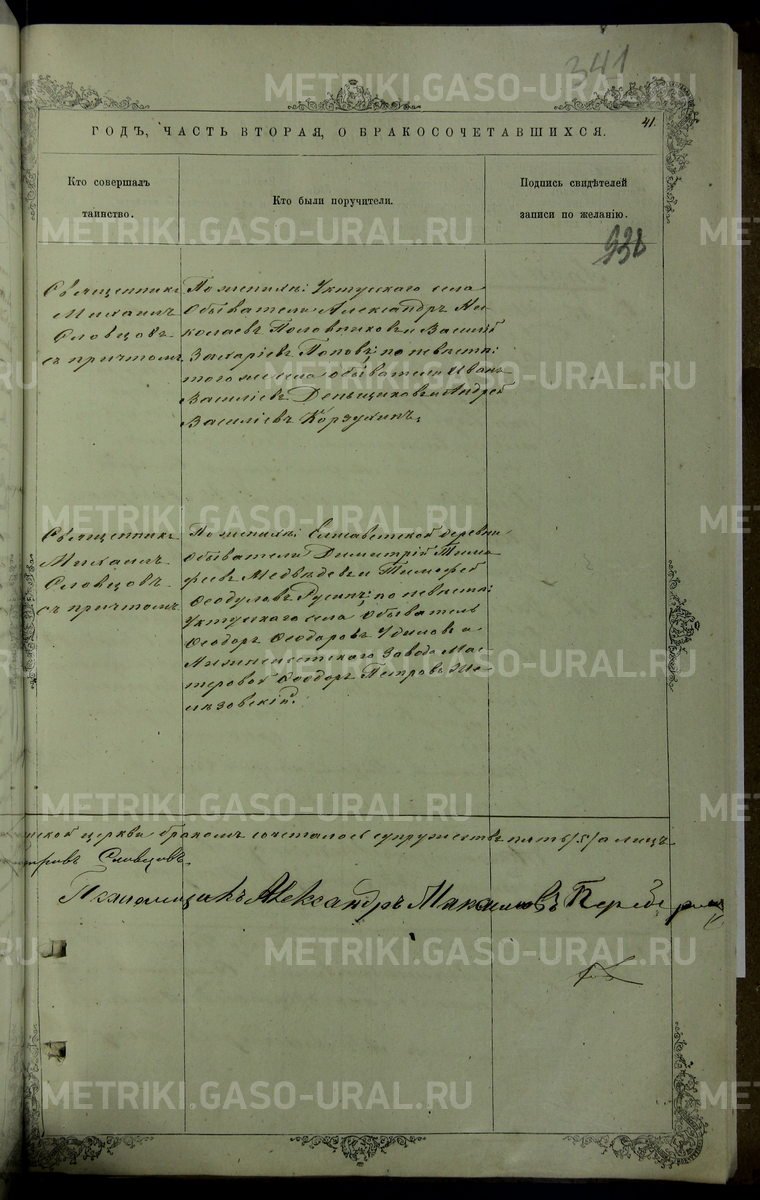 341
41.
ГОДЪ, ЧАСТЬ ВТОРАЯ, О БРАКОСОЧЕТАВШИХСЯ.
Кто совершалъ
таинство.
Кто были поручители.
Подпись свидѣтелей
записи по желанію.
938
Священникъ
Михаилъ
Словцовъ
съ причтомъ
По женихѣ: Уктускаго села
обыватели Александръ Ни-
колаевъ и Василій
Захаріевъ Поповъ; по невѣстѣ:
того же села обыватели Иванъ
Василіевъ Деньщиковъ и Андрей
Василіевъ Корзухинъ.
Священникъ
Михаилъ
Словцовъ
съ причтомъ
По женихѣ: Елисаветской деревни
обыватели Димитрій Тимо-
феевъ Медвѣдевъ и Тимофей
Ѳеодуловъ Русинъ; по невѣстѣ:
Уктускаго села обыватель
Ѳеодоръ Ѳеодоровъ и
Нижнеисетскаго Завода Мас-
теровой Ѳеодоръ Петровъ
ской церкви бракомъ сочеталось супружествъ пять /5/ а лицъ
Словцовъ
Псаломщикъ Александръ
METRIKI.GASO-URAL.RU